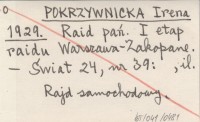 POKRZYWNICKA Irena
1929. Raid pań. I etap
raidu Warszawa-Zakopane.
- Świat 24, nr 39: , il.
Rajd samochodowy.